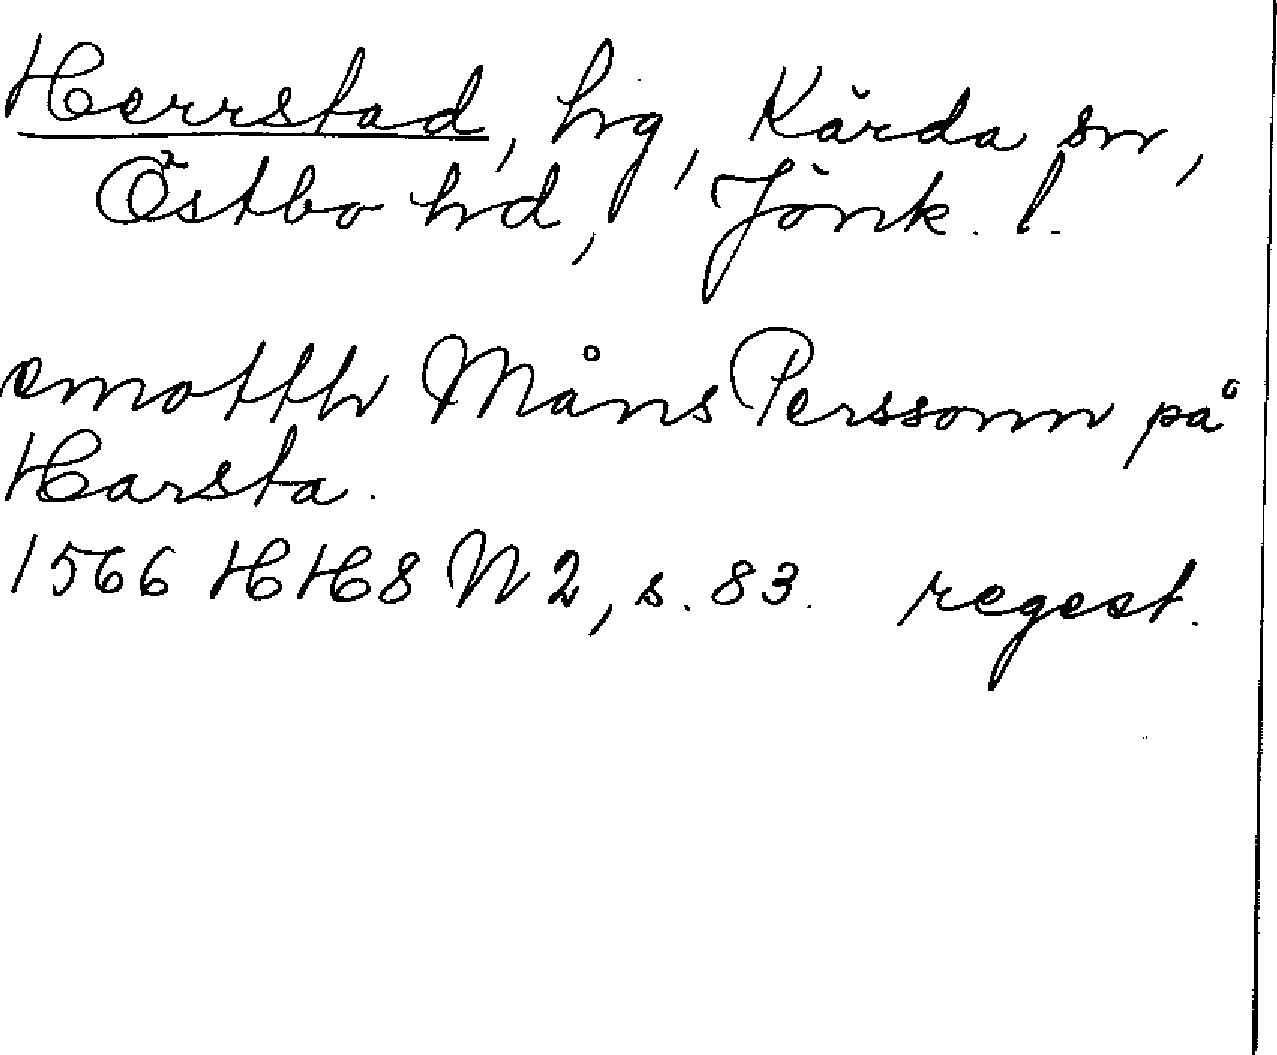 Herrstad, hg, Kärda sn,
Östbo hd, Jönk. l.
emotth Måns Perssonn på
Harsta.
1566 HH8 N 2, s. 83. regest.